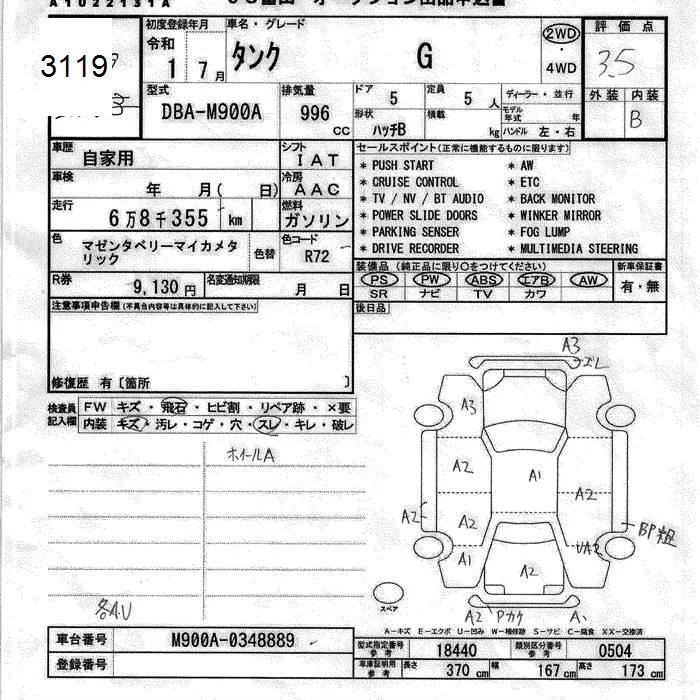 A1022131A
3119
初度登録年月
令和
1 7月
車名・グレード
タンク G
2WD
・
4WD
評価点
3.5
外装 内装
B
型式
DBA-M900A
排気量
996 CC
ドア 5
定員 5 人
ディーラー・並行
形状 ハッチB
積載 kg
モデル年式 年
ハンドル 左・右
車歴
自家用
シフト
IAT
車検
年 月( 日)
冷房
AAC
走行
6万8千355 km
燃料
ガソリン
色
マゼンタベリーマイカメタリック
色替
色コード
R72
R券
9,130円
名変通知期限
月 日
セールスポイント(正常に機能するものに限ります)
* PUSH START * AW
* CRUISE CONTROL * ETC
* TV / NV / BT AUDIO * BACK MONITOR
* POWER SLIDE DOORS * WINKER MIRROR
* PARKING SENSER * FOG LUMP
* DRIVE RECORDER * MULTIMEDIA STEERING
装備品(純正品に限り○をつけてください)
新車保証書
PS PW ABS エアB AW
SR ナビ TV カワ
有・無
後日品
注意事項申告欄(不具合内容等は具体的に記入して下さい)
修復歴 有〔箇所 〕
検査員記入欄
FW キズ・飛石・ヒビ割・リペア跡・×要
内装 キズ・汚レ・コゲ・穴・スレ・キレ・破レ
ホイールA
各A.U
A3
ズレ
A3
A2
A1
A2
A2
A2
BP粗
A1
UA2
A2
A2 Pカケ
A1
スペア
A-キズ E-エクボ U-凹み W-補修跡 S-サビ C-腐食 XX-交換済
車台番号
M900A-0348889
登録番号
型式指定番号 参考
18440
類別区分番号 参考
0504
車庫証明用 参考
長さ 370 cm
幅 167 cm
高さ 173 cm